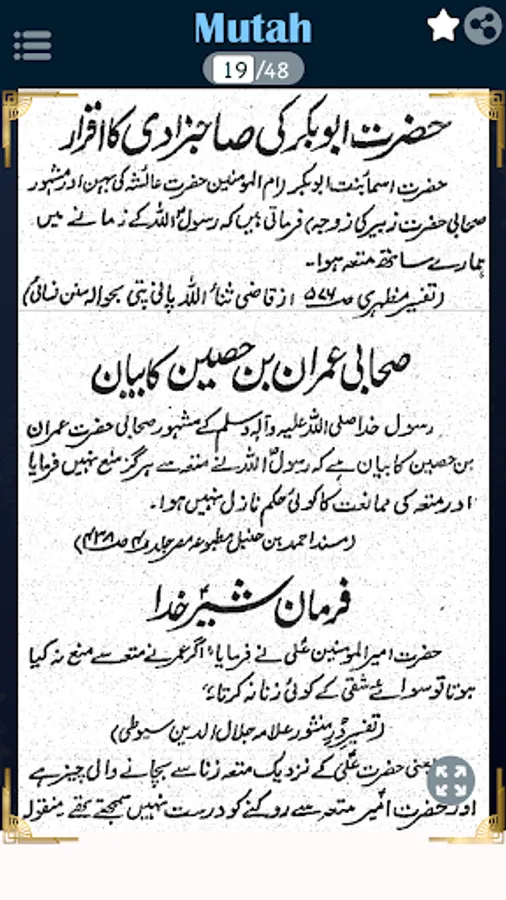 Mutah
19/48
حضرت ابوبکر کی صاحبزادی کا اقرار
حضرت اسما بنت ابوبکر (ام المومنین حضرت عائشہ کی بہن اور مشہور
صحابی حضرت زبیر کی زوجہ) فرماتی ہیں کہ رسول اللہ کے زمانے میں
ہمارے ساتھ متعہ ہوا۔
(تفسیر مظہری صـ ۵۷۶ از قاضی ثناء اللہ پانی پتی بحوالہ سنن نسائی)
صحابی عمران بن حصین کا بیان
رسول خدا صلی اللہ علیہ وآلہ وسلم کے مشہور صحابی حضرت عمران
بن حصین کا بیان ہے کہ رسول اللہ نے متعہ سے ہرگز منع نہیں فرمایا
اور متعہ کی ممانعت کا کوئی حکم نازل نہیں ہوا۔
(مسند احمد بن حنبل مطبوعہ مصر جلد ۴ صـ ۴۳۸)
فرمان شیر خدا
حضرت امیر المومنین علی نے فرمایا "اگر عمر نے متعہ سے منع نہ کیا
ہوتا تو سوائے شقی کے کوئی زنا نہ کرتا"
(تفسیر در منثور علامہ جلال الدین سیوطی)
یعنی حضرت علی کے نزدیک متعہ زنا سے بچانے والی چیز ہے
اور حضرت امیر متعہ سے روکنے کو درست نہیں سمجھتے تھے منقول